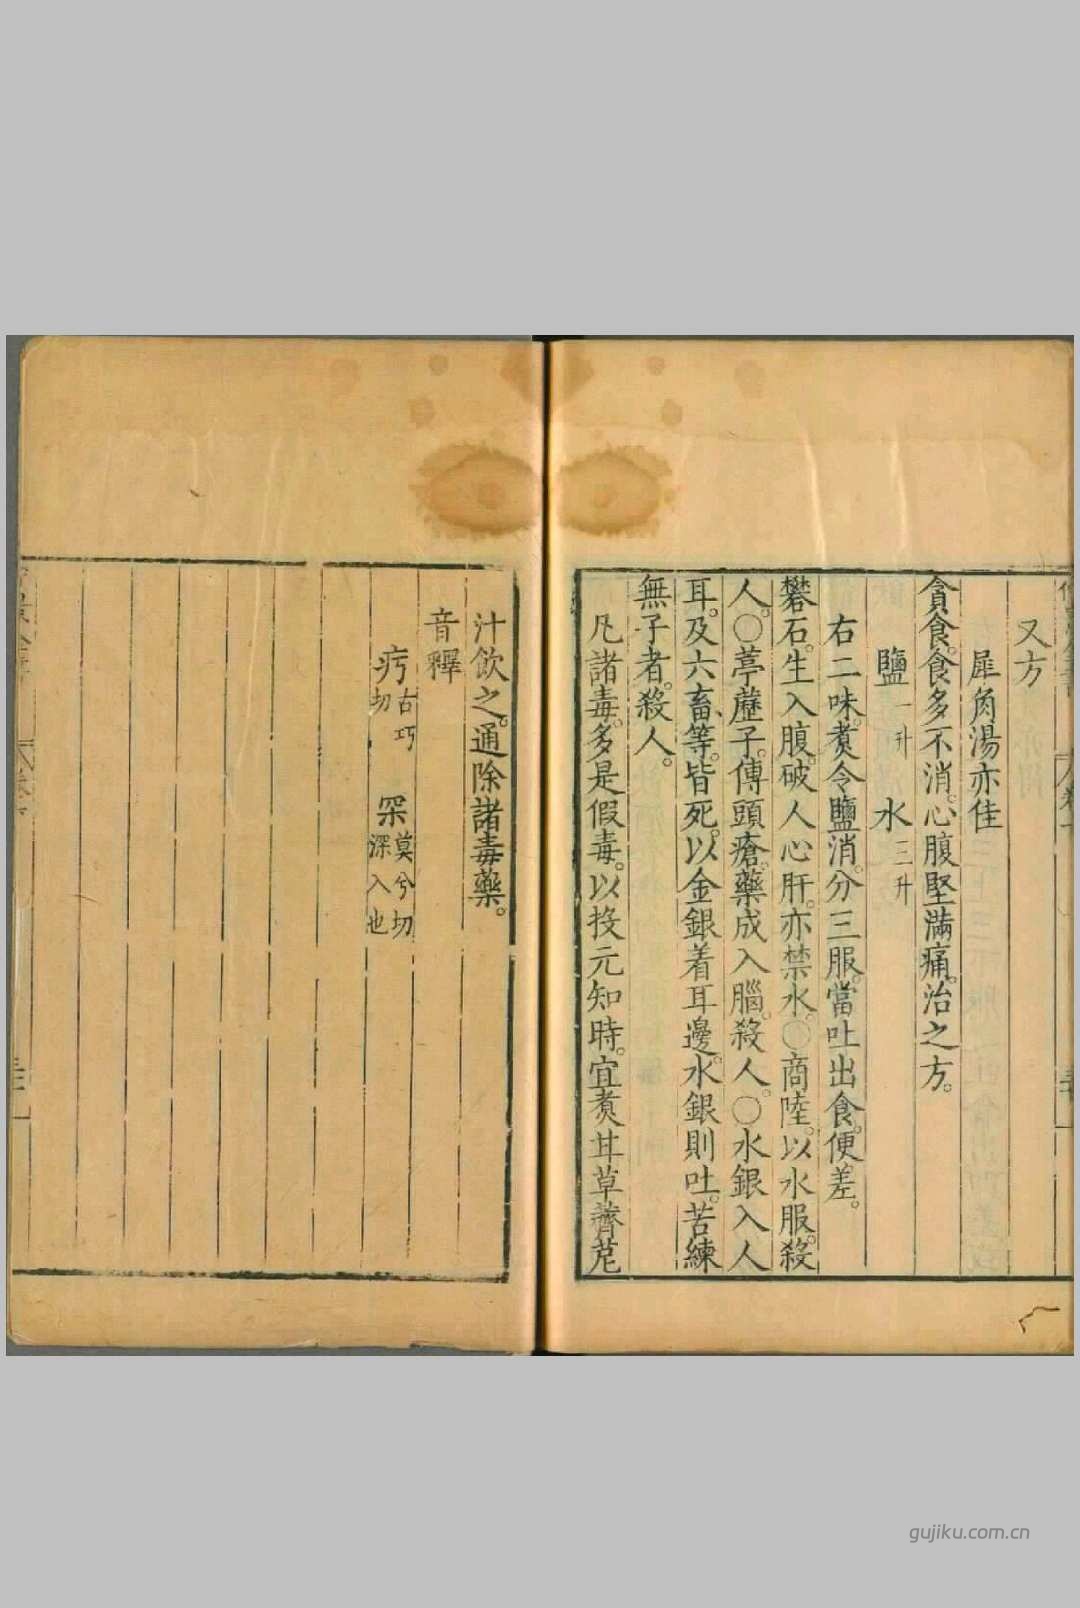 又方
犀角湯亦佳
貪食。食多不消。心腹堅滿痛。治之方。
鹽一升 水三升
右二味。煑令鹽消。分三服。當吐出食。便差。
礬石。生入腹。破人心肝。亦禁水。〇商陸。以水服。殺
人。〇葶藶子。傳頭瘡。藥成入腦。殺人。〇水銀入人
耳。及六畜等。皆死。以金銀着耳邊。水銀則吐。苦練
無子者。殺人。
凡諸毒。多是假毒。以投元知時。宜煑甘草薺苨
汁飲之。通除諸毒藥。
音釋
㽱古巧切 罙莫兮切深入也
gujiku.com.cn